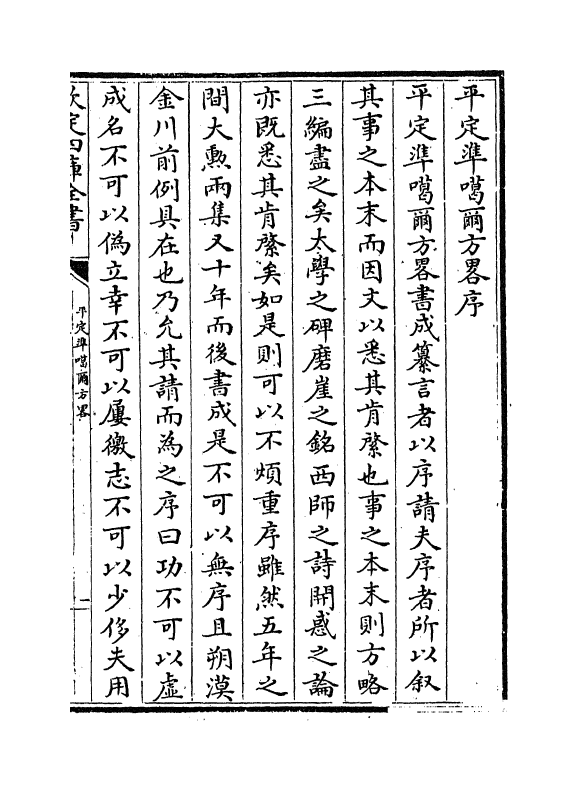 平定準噶爾方畧序
平定準噶爾方畧書成纂言者以序請夫序者所以叙
其事之本末而因文以悉其肯綮也事之本末則方略
三編盡之矣太學之碑磨崖之銘西師之詩開惑之論
亦既悉其肯綮矣如是則可以不煩重序雖然五年之
間大勲兩集又十年而後書成是不可以無序且朔漠
金川前例具在也乃允其請而為之序曰功不可以虛
成名不可以偽立幸不可以屢徼志不可以少侈夫用
欽定四庫全書
平定準噶爾方畧
一